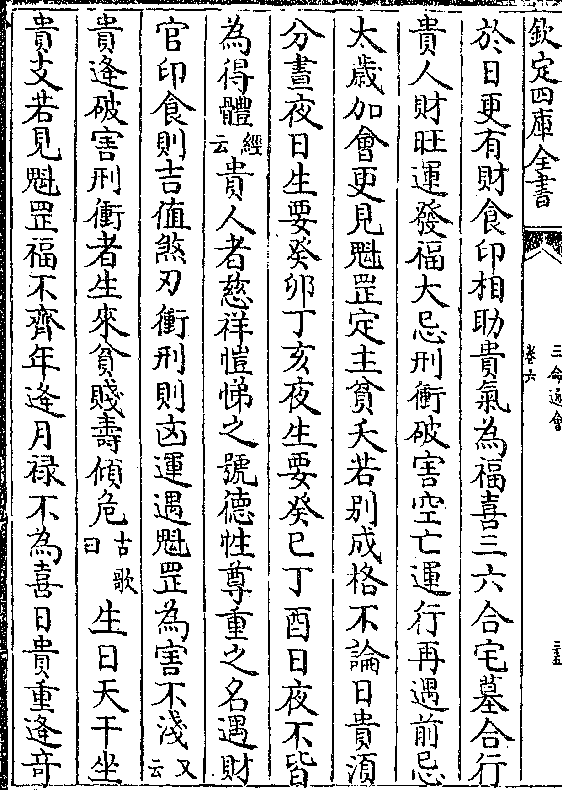 欽定四庫全書
三命通會
卷六
於日更有財食印相助貴氣為福喜三六合宅墓合行
貴人財旺運發福大忌刑衝破害空亡運行再遇前忌
太歲加會更見魁罡定主貧夭若别成格不論日貴須
分晝夜日生要癸卯丁亥夜生要癸巳丁酉日夜不皆
為得體經云貴人者慈祥愷悌之號德性尊重之名遇財
官印食則吉值煞刃衝刑則凶運遇魁罡為害不淺又云
貴逢破害刑衝者生來貧賤壽傾危古歌曰生日天干坐
貴支若見魁罡福不齊年逢月禄不為喜日貴重逢竒